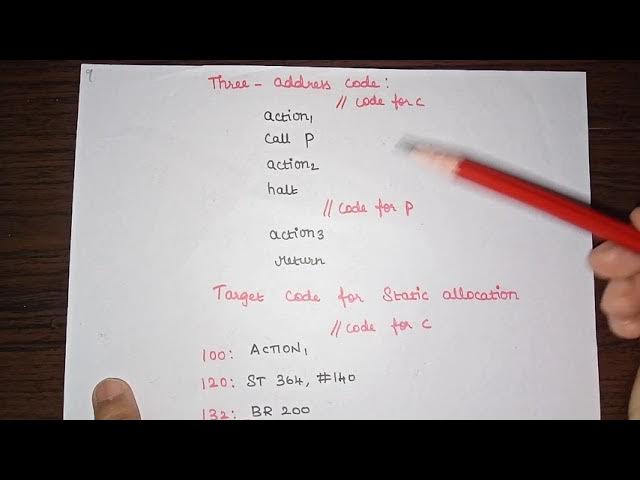 9
Three - address code:
// code for c
action₁
Call P
action₂
halt
// code for P
action₃
return
Target code for Static allocation
// code for c
100: ACTION₁
120: ST 364, #140
132: BR 200